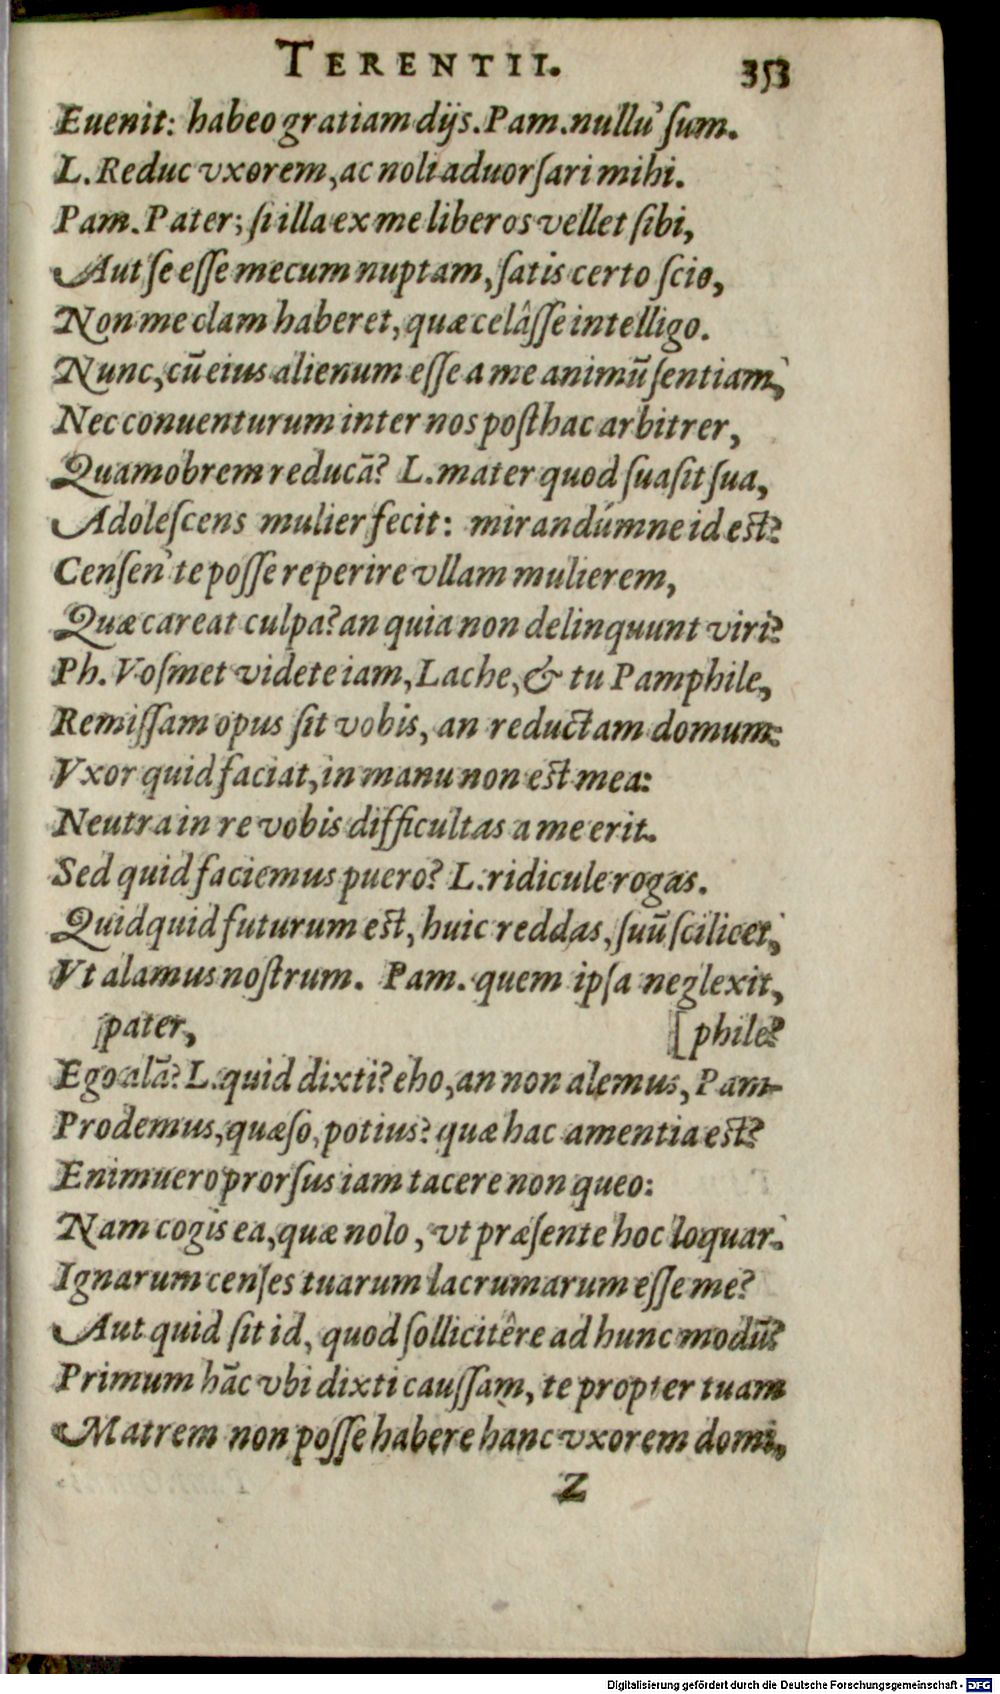 TERENTII. 353
Euenit: habeo gratiam dijs. Pam. nullu' ſum.
L. Reduc vxorem, ac noli aduorſari mihi.
Pam. Pater; ſi illa ex me liberos vellet ſibi,
Aut ſe eſſe mecum nuptam, ſatis certo ſcio,
Non me clam haberet, quæ celâſſe intelligo.
Nunc, cũ eius alienum eſſe a me animũ ſentiam,
Nec conuenturum inter nos poſthac arbitrer,
Quamobrem reducã? L. mater quod ſuaſit ſua,
Adoleſcens mulier fecit: mirandúmne id est?
Cenſen' te poſſe reperire vllam mulierem,
Quæ careat culpa? an quia non delinquunt viri?
Ph. Voſmet videte iam, Lache, & tu Pamphile,
Remiſſam opus ſit vobis, an reductam domum:
Vxor quid faciat, in manu non est mea:
Neutra in re vobis difficultas a me erit.
Sed quid faciemus puero? L. ridicule rogas.
Quidquid futurum est, huic reddas, ſuũ ſcilicet,
Vt alamus noſtrum. Pam. quem ipſa neglexit,
pater, [phile?
Ego alã? L. quid dixti? eho, an non alemus, Pam-
Prodemus, quæſo, potius? quæ hac amentia est?
Enimuero prorſus iam tacere non queo:
Nam cogis ea, quæ nolo, vt præſente hoc loquar.
Ignarum cenſes tuarum lacrumarum eſſe me?
Aut quid ſit id, quod ſollicitêre ad hunc modũ?
Primum hãc vbi dixti cauſſam, te propter tuam
Matrem non poſſe habere hanc vxorem domi,
Z
Digitalisierung gefördert durch die Deutsche Forschungsgemeinschaft - DFG